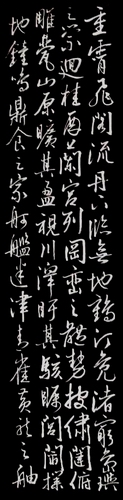 重霄飛閣流丹下臨無地鶴汀鳧渚窮島嶼
之縈迴桂殿蘭宮列岡巒之體勢披繡闥俯
雕甍山原曠其盈視川澤盱其駭矚閭閻撲
地鍾鳴鼎食之家舸艦迷津青雀黃龍之舳